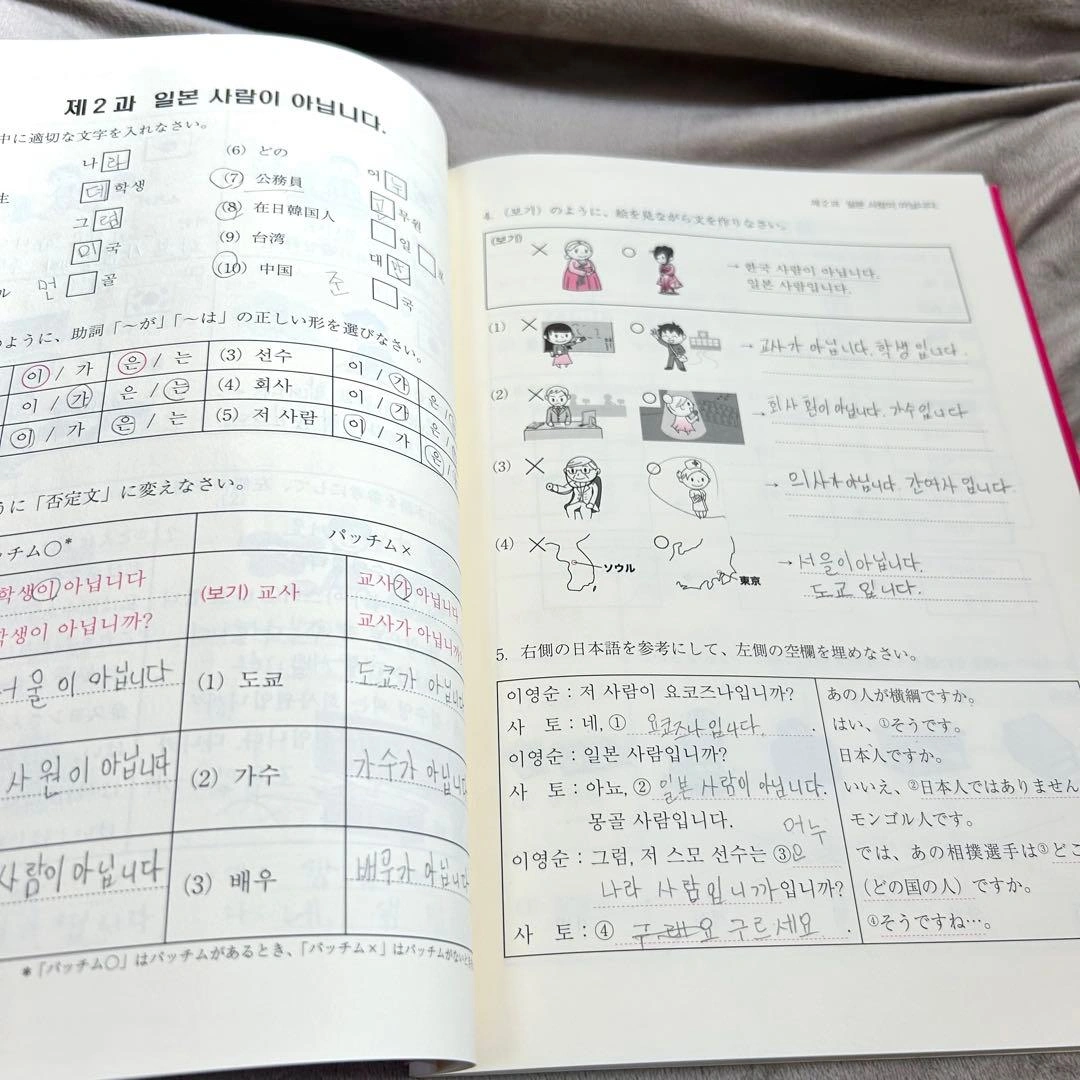 제2과 일본 사람이 아닙니다.
中に適切な文字を入れなさい。
나라
生 대학생
그럼
미국
ル 먼 골
(6) どの 어누
(7) 公務員 공무원
(8) 在日韓国人 일
(9) 台湾 대만
(10) 中国 준 국
のように、助詞「～が」「～は」の正しい形を選びなさい。
이 / 가 은 / 는 (3) 선수 이 / 가
이 / 가 은 / 는 (4) 회사 이 / 가 은 /
이 / 가 은 / 는 (5) 저 사람 이 / 가 은 /
うに「否定文」に変えなさい。
ッチム○* パッチム×
학생이 아닙니다 (보기) 교사 교사가 아닙니다
학생이 아닙니까? 교사가 아닙니까?
서울이 아닙니다 (1) 도쿄 도쿄가 아닙니
사원이 아닙니다 (2) 가수 가수가 아닙니
사람이 아닙니다 (3) 배우 배우가 아닙니다
*「パッチム○」はパッチムがあるとき、「パッチム×」はパッチムがない
제2과 일본 사람이 아닙니다.
4. 〈보기〉のように、絵を見ながら文を作りなさい。
〈보기〉 → 한국 사람이 아닙니다.
일본 사람입니다.
(1) → 교사가 아닙니다. 학생입니다.
(2) → 회사원이 아닙니다. 가수입니다
(3) → 의사가 아닙니다. 간여사입니다.
(4) ソウル 東京 → 서울이아닙니다.
도쿄입니다.
5. 右側の日本語を参考にして、左側の空欄を埋めなさい。
이영순 : 저 사람이 요코즈나입니까? あの人が横綱ですか。
사 토 : 네, ① 요코즈나입니다. はい、①そうです。
이영순 : 일본 사람입니까? 日本人ですか。
사 토 : 아뇨, ② 일본 사람이 아닙니다. いいえ、②日本人ではありません
몽골 사람입니다. モンゴル人です。
어누
이영순 : 그럼, 저 스모 선수는 ③ では、あの相撲選手は③どこ
나라 사람입니까입니까? (どの国の人) ですか。
사 토 : ④ 구르세요. ④そうですね…。